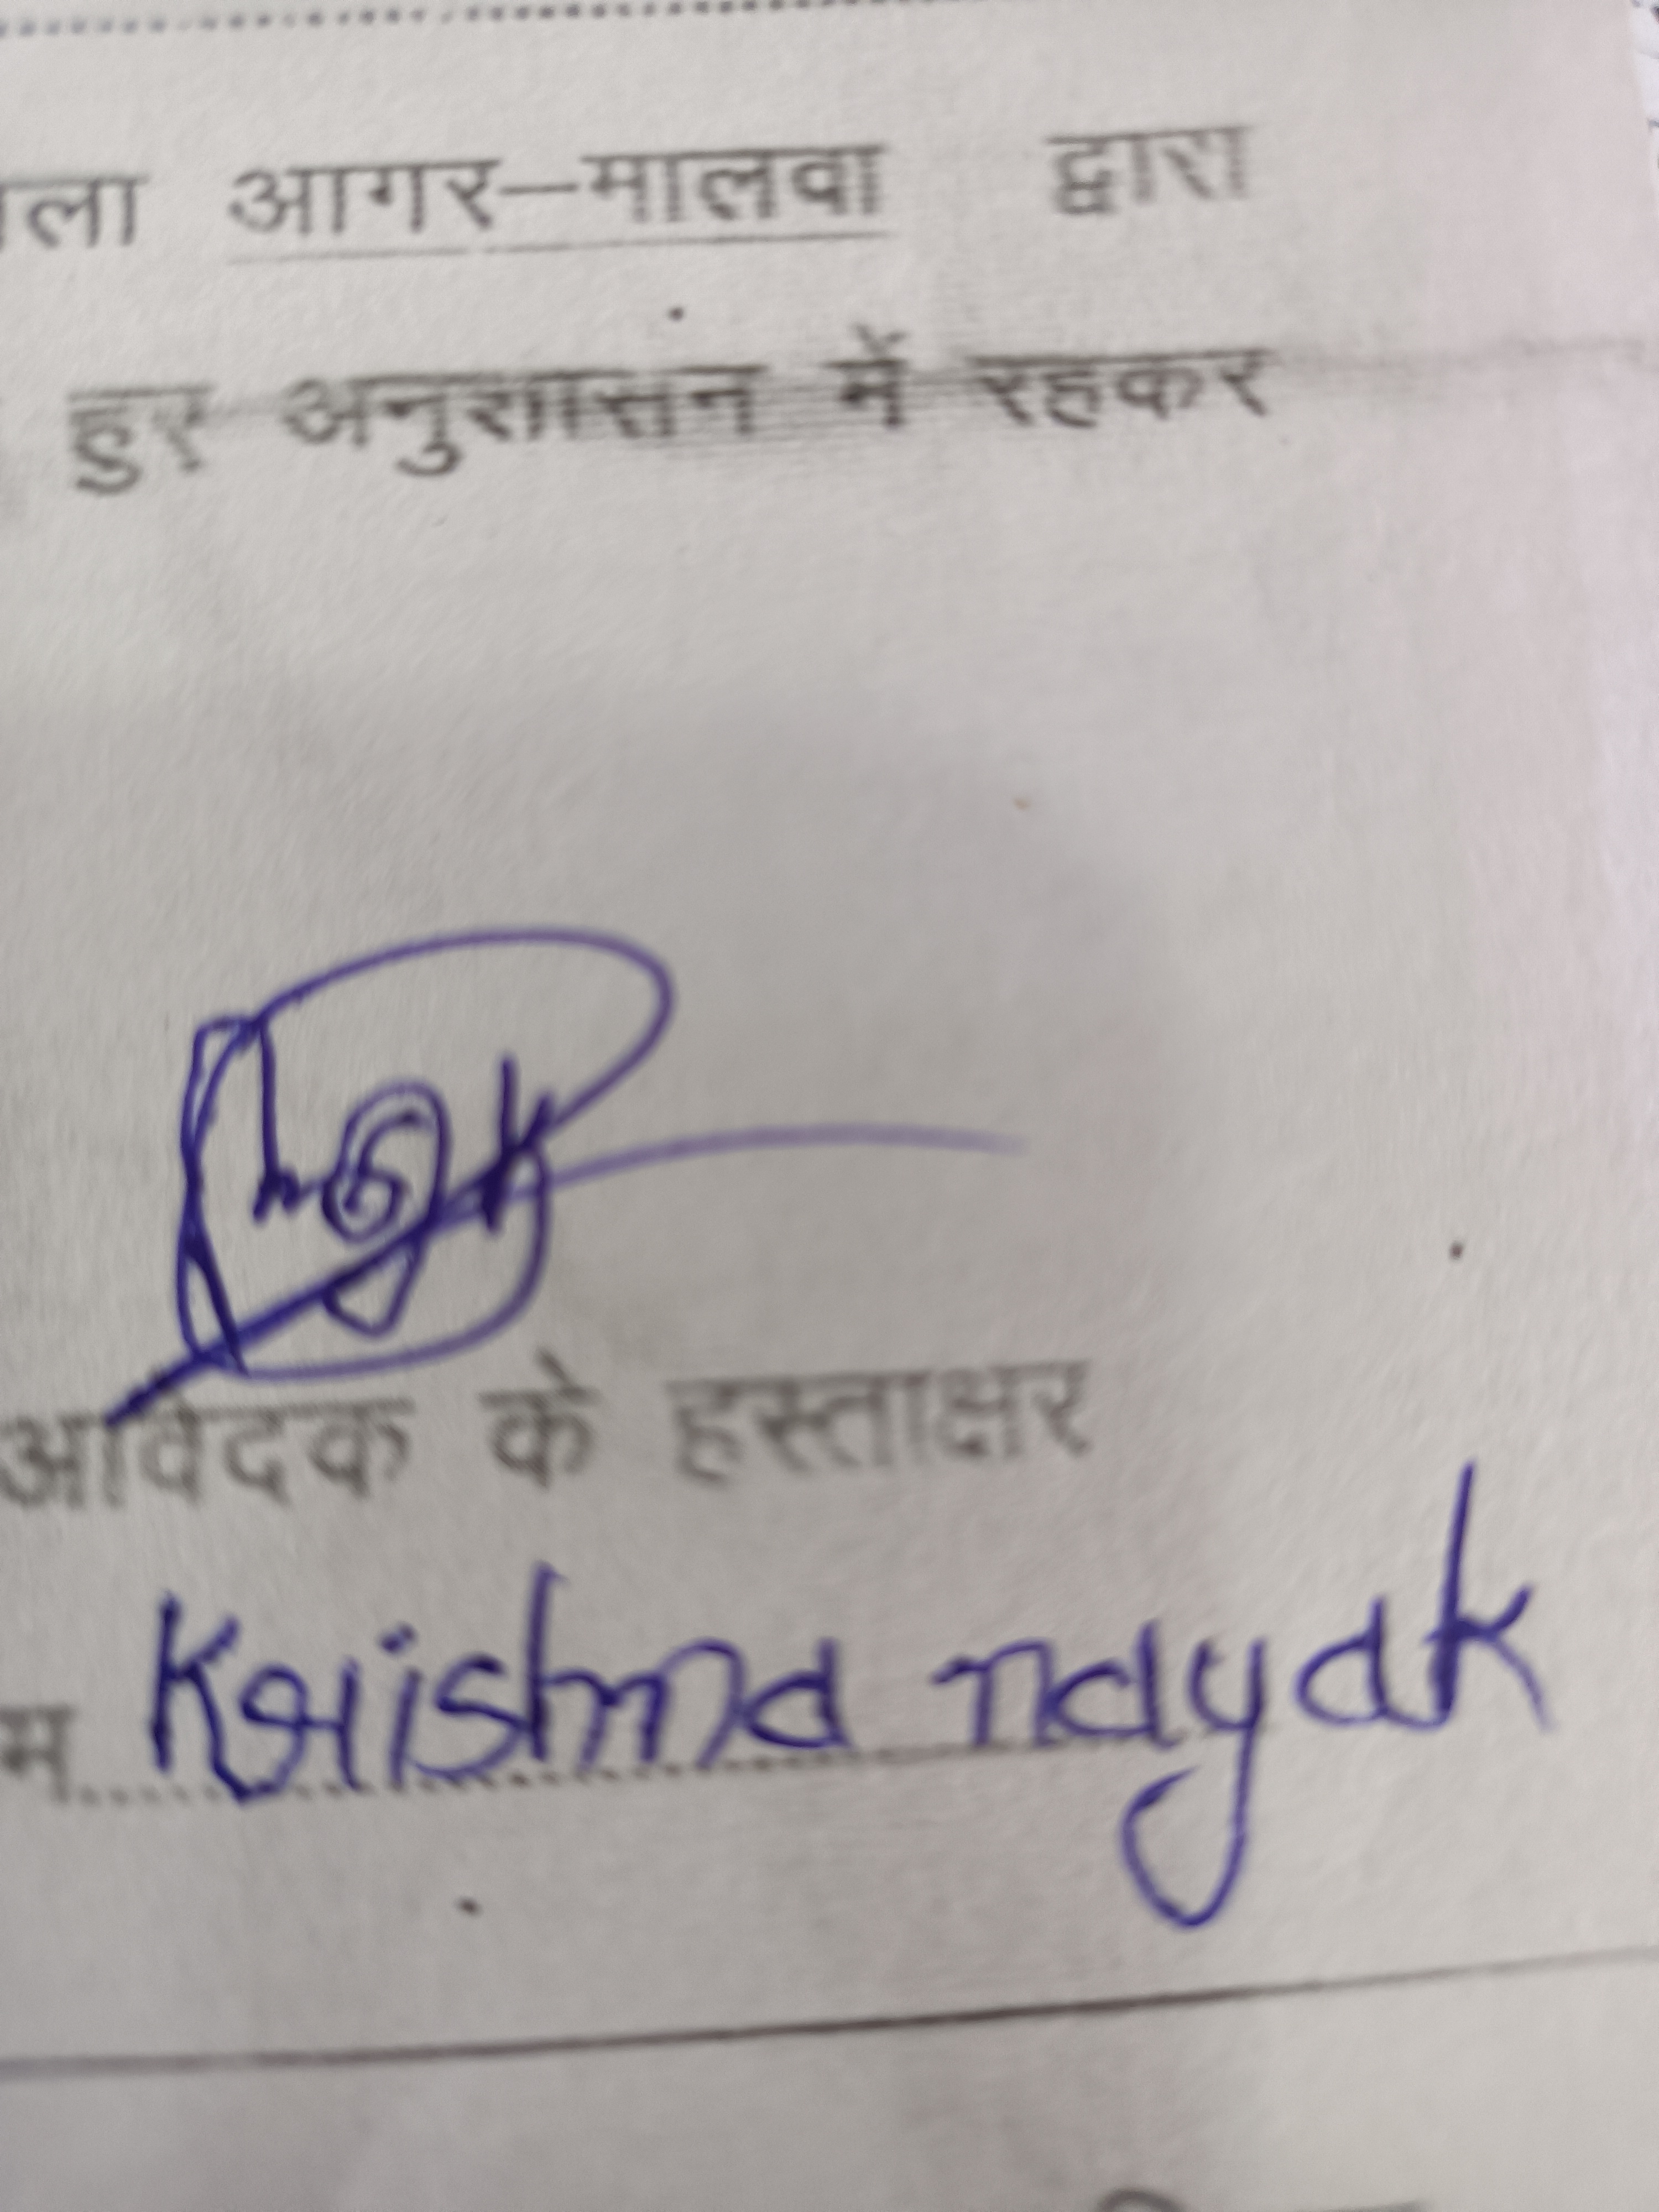 ला आगर–मालवा द्वारा
हुए अनुशासन में रहकर
आवेदक के हस्ताक्षर
म Krishna nayak